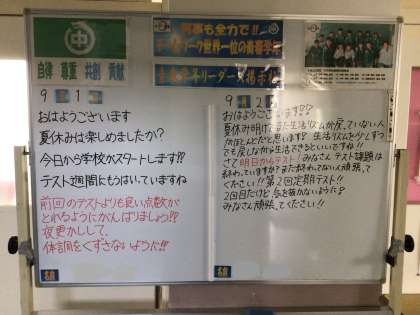 自律 尊重 共創 貢献
何事も全力で!!
9 1
おはようございます
夏休みは楽しめましたか?
今日から学校がスタートします!?
テスト週間にもうはいていますね
前回のテストよりも良い点数が
とれるようにがんばりましょう!?
夜更かしして、
体調をくずさないように!!
9 2
おはようございます!?
夏休み明けでまだ生活リズムが戻っていない人
がほとんどだと思いますが 生活リズムを少しずつ
でも戻しながら生活できるといいですね!!
さて明日からテスト!みなさんテスト課題は
終わっていますか?まだ終わってない人頑張って
ください!!第2回定期テスト!!
2回目だけど気を抜かないように?
みなさん頑張ってください!!